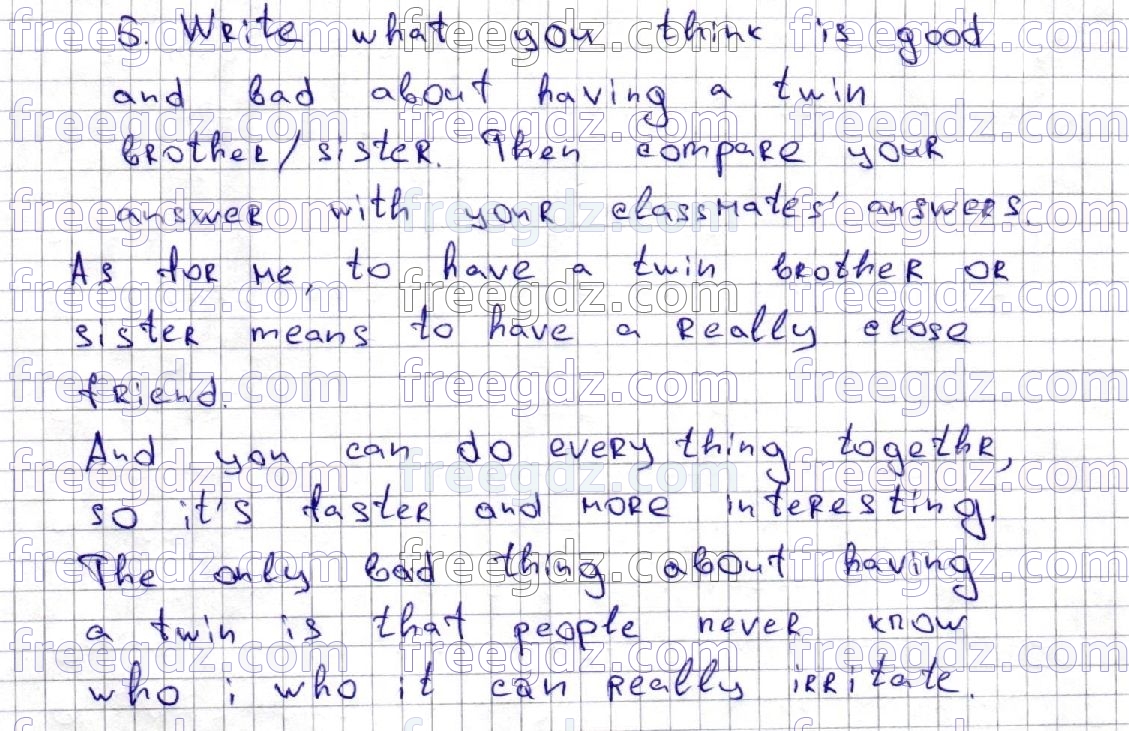 5. Write what you think is good
and bad about having a twin
brother/sister. Then compare your
answer with your classmates' answers.
As for me, to have a twin brother or
sister means to have a really close
friend.
And you can do everything togethr,
so it's faster and more interesting.
The only bad thing about having
a twin is that people never know
who i who it can really irritate.
freegdz.com